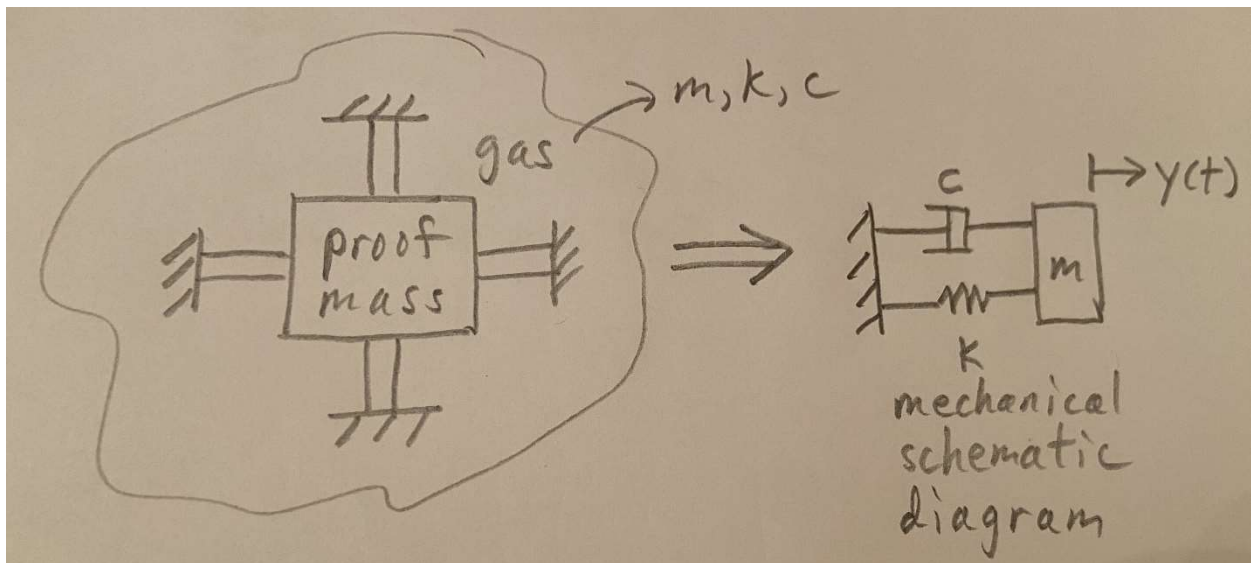 m, k, c
gas
proof
mass
c
y(t)
m
k
mechanical
schematic
diagram